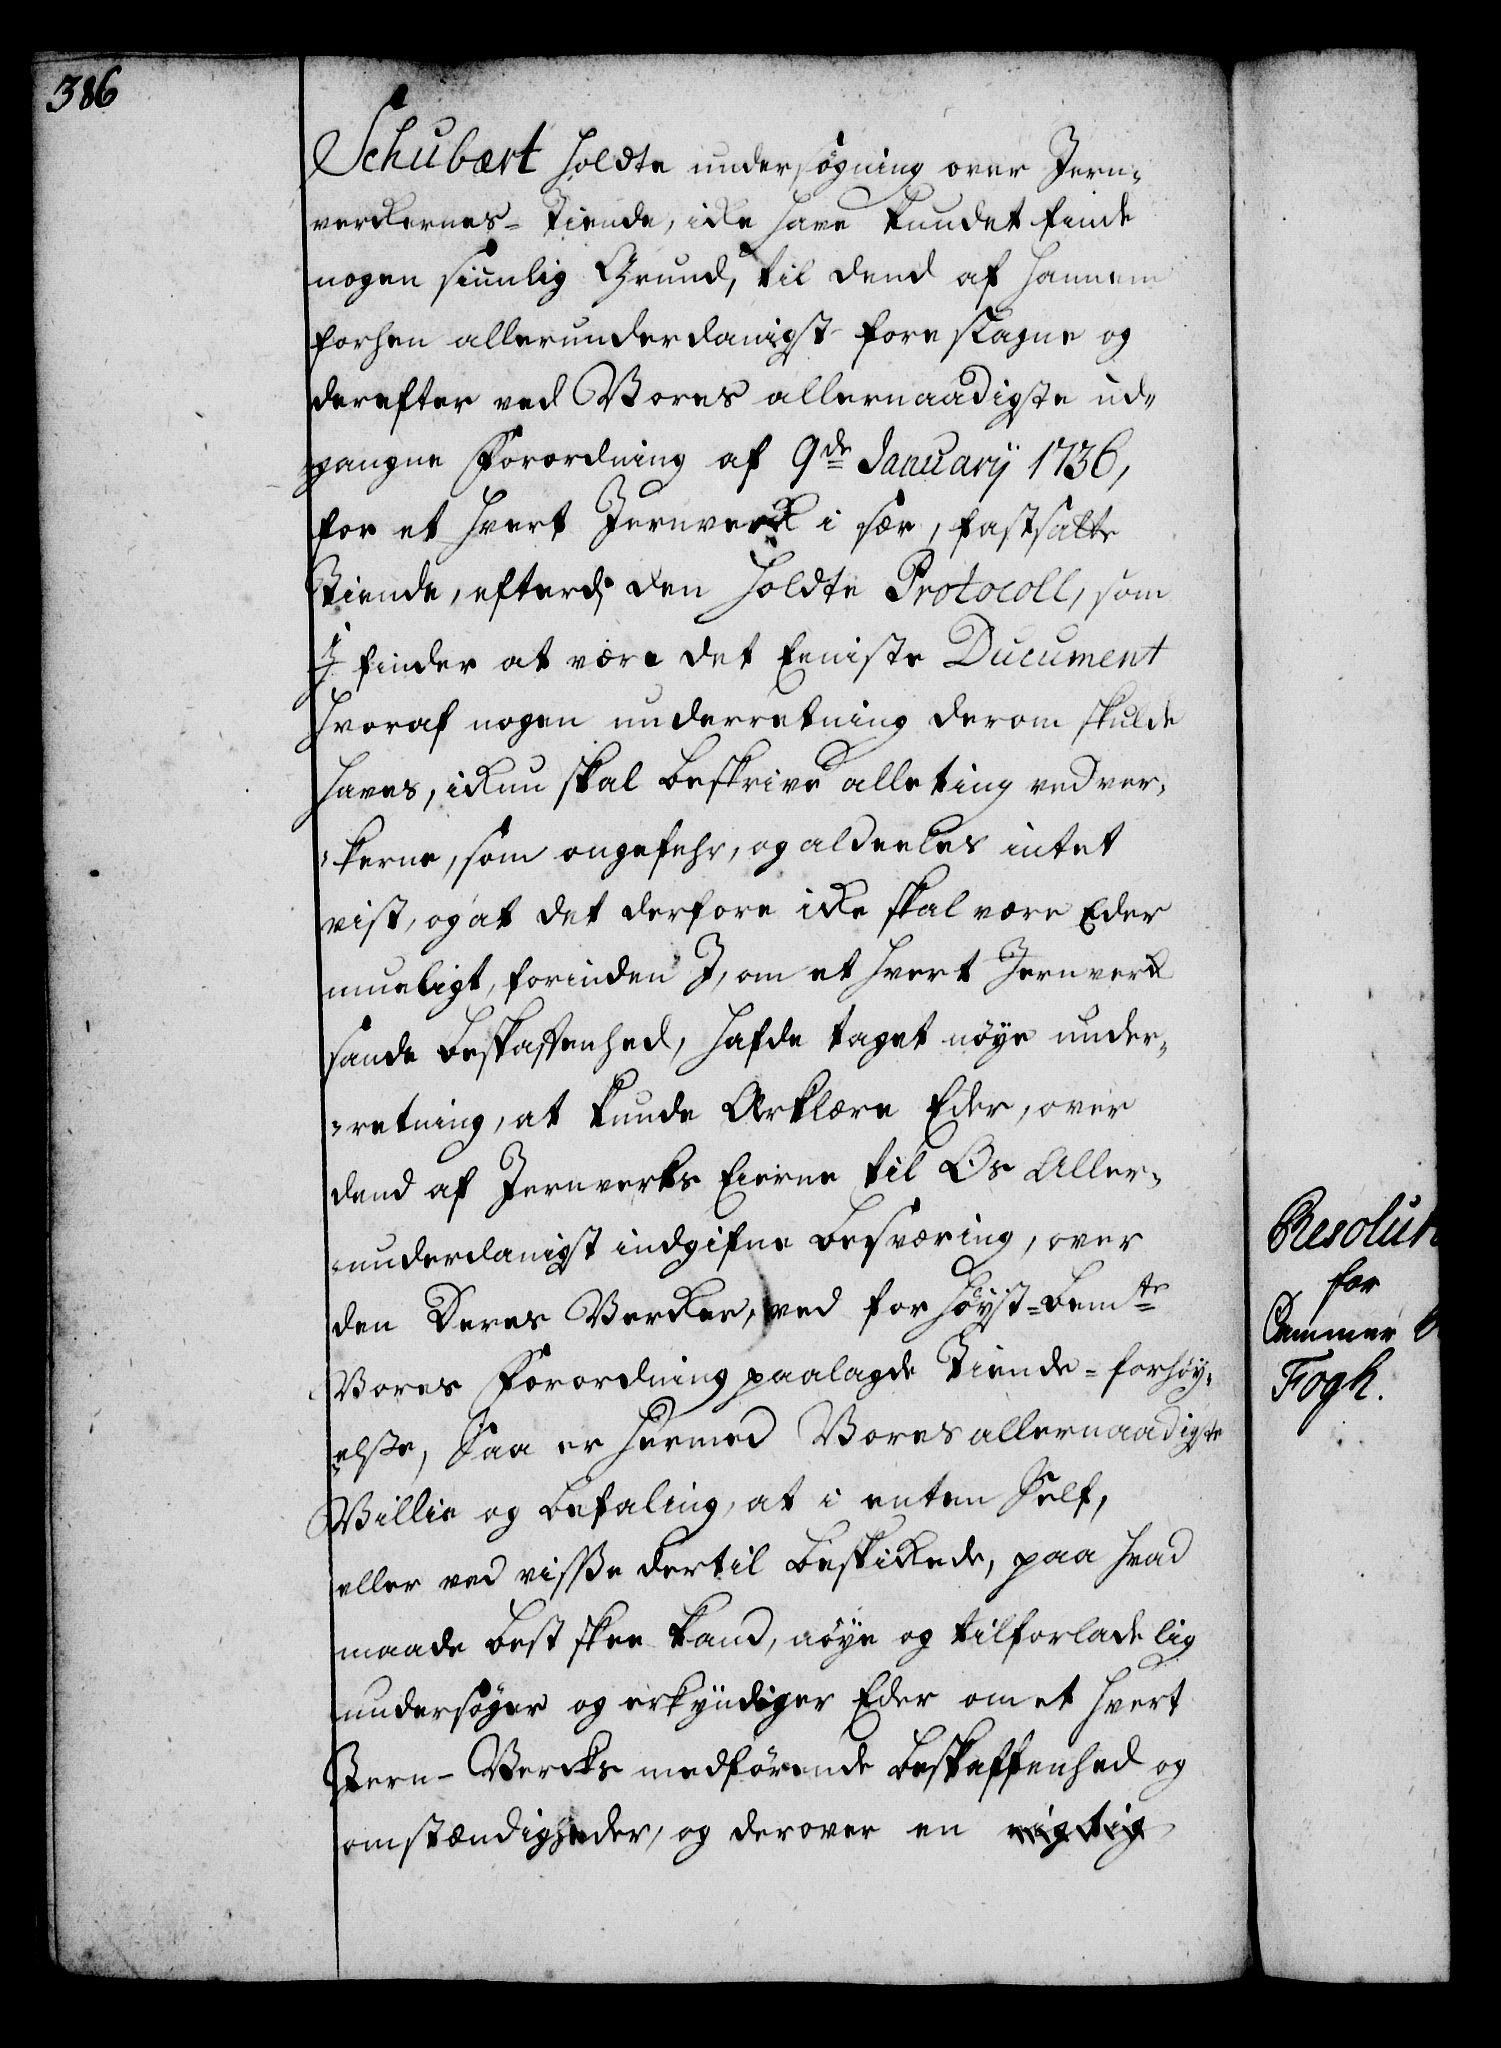 386
Schubært holdte undersøgning over Jern-
verckernes-Tiende, icke have kundet finde
nogen sinnlig Grund, til dend af hannem
forhen allerunderdanigst foreslagne og
derefter ved Vores allernaadigste ud-
gangne Forordning af 9de January 1736,
for et hvert Jernverck i sær, fastsatte
Tiende, efterdj den holdte Protocoll, som
J finder at være det Eeniste Ducument
hvoraf nogen underretning derom skulde
haves, ickun skal beskrive alle ting ved ver-
kerne, som ongefehr, og aldeeles intet
vist, og at det derfore icke skal være Eder
mueligt, forinden J, om et hvert Jernverck
sande beskaffenhed, hafde taget nøye under-
retning, at kunde Erklære Eder, over
dend af Jernverks Eierne til Os Aller-
underdanigst indgifne besværing, over
den Deres Vercker, ved for høyst-bemte
Vores Forordning paalagde Tiende-forhøy-
elsse, Saa er hermed Vores allernaadigste
Villie og befaling, at i enten Self,
eller ved visse dertil beskickede, paa hvad
maade best skee kand, nøye og tilforladelig
undersøger og erkyndiger Eder om et hvert
Jern-Vercks medførende beskaffenhed og
omstændigheder, og derover en rigtig
Resolut
for
Cammer
Fogh.